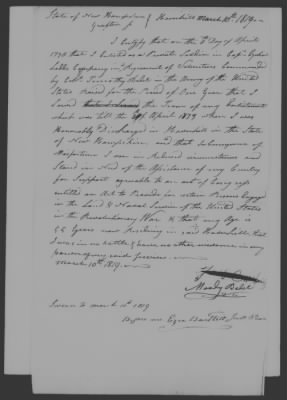 State of New Hampshire } Haverhill March 10th 1819
Grafton ss
I Certify that on the Day of April
1778 that I Enlisted as a Private Soldier in Capt
Company in Regiment of Commanded
by Col. Timothy Bedel in the Army of the United
States Raised for the Period of One Year that I
Served the Term of my Enlistment
which was till the April 1779 when I was
Honorably Discharged in Haverhill in the State
of New Hampshire, and that by
Misfortune I am in Reduced circumstances and
Stand in Need of the Assistance of my Country
for Support agreeable to an act of Congress
entitled an Act to Provide for certain Persons Engaged
in the Land & Naval Service of the United States
in the Revolutionary War. & that my Age is
years now Residing in said Haverhill, that
I was in no battle & have no other evidence in my
power of my said services.
March 10th 1819.
Moody Bedel
Sworn to March 10th 1819
Before me Ezra Bartlett Just. Peace